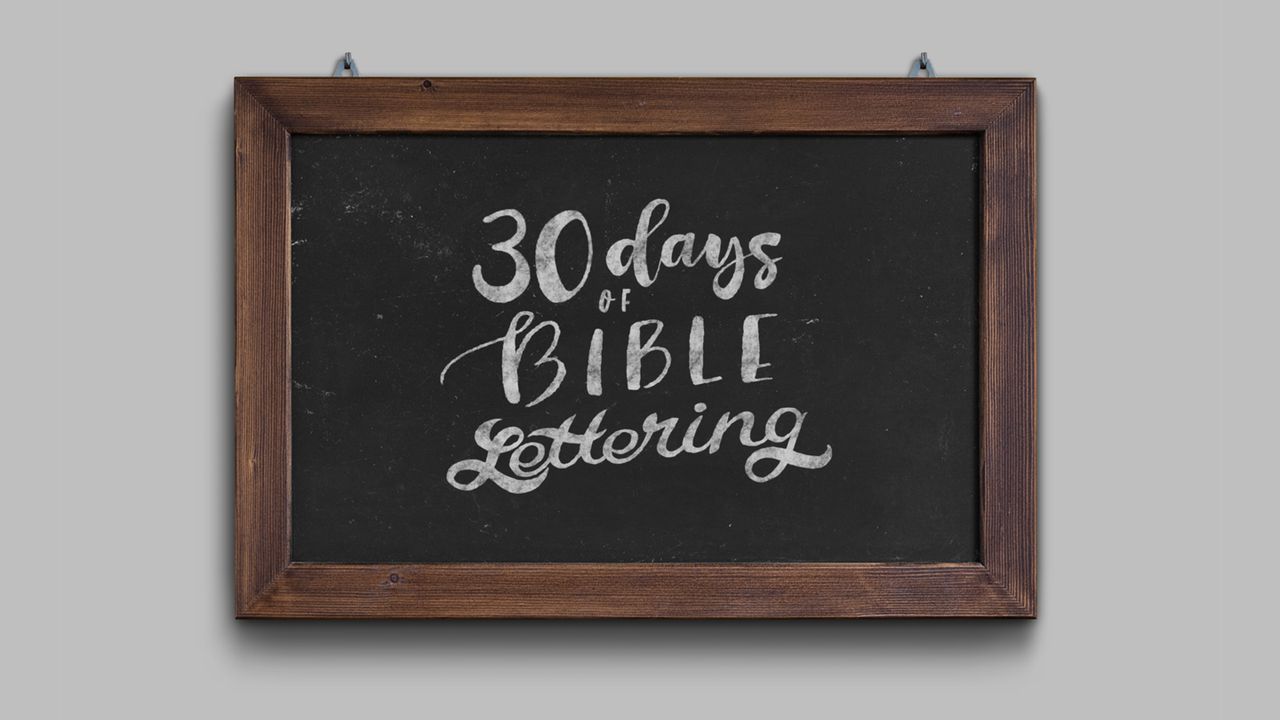 30 days
OF
BIBLE
Lettering